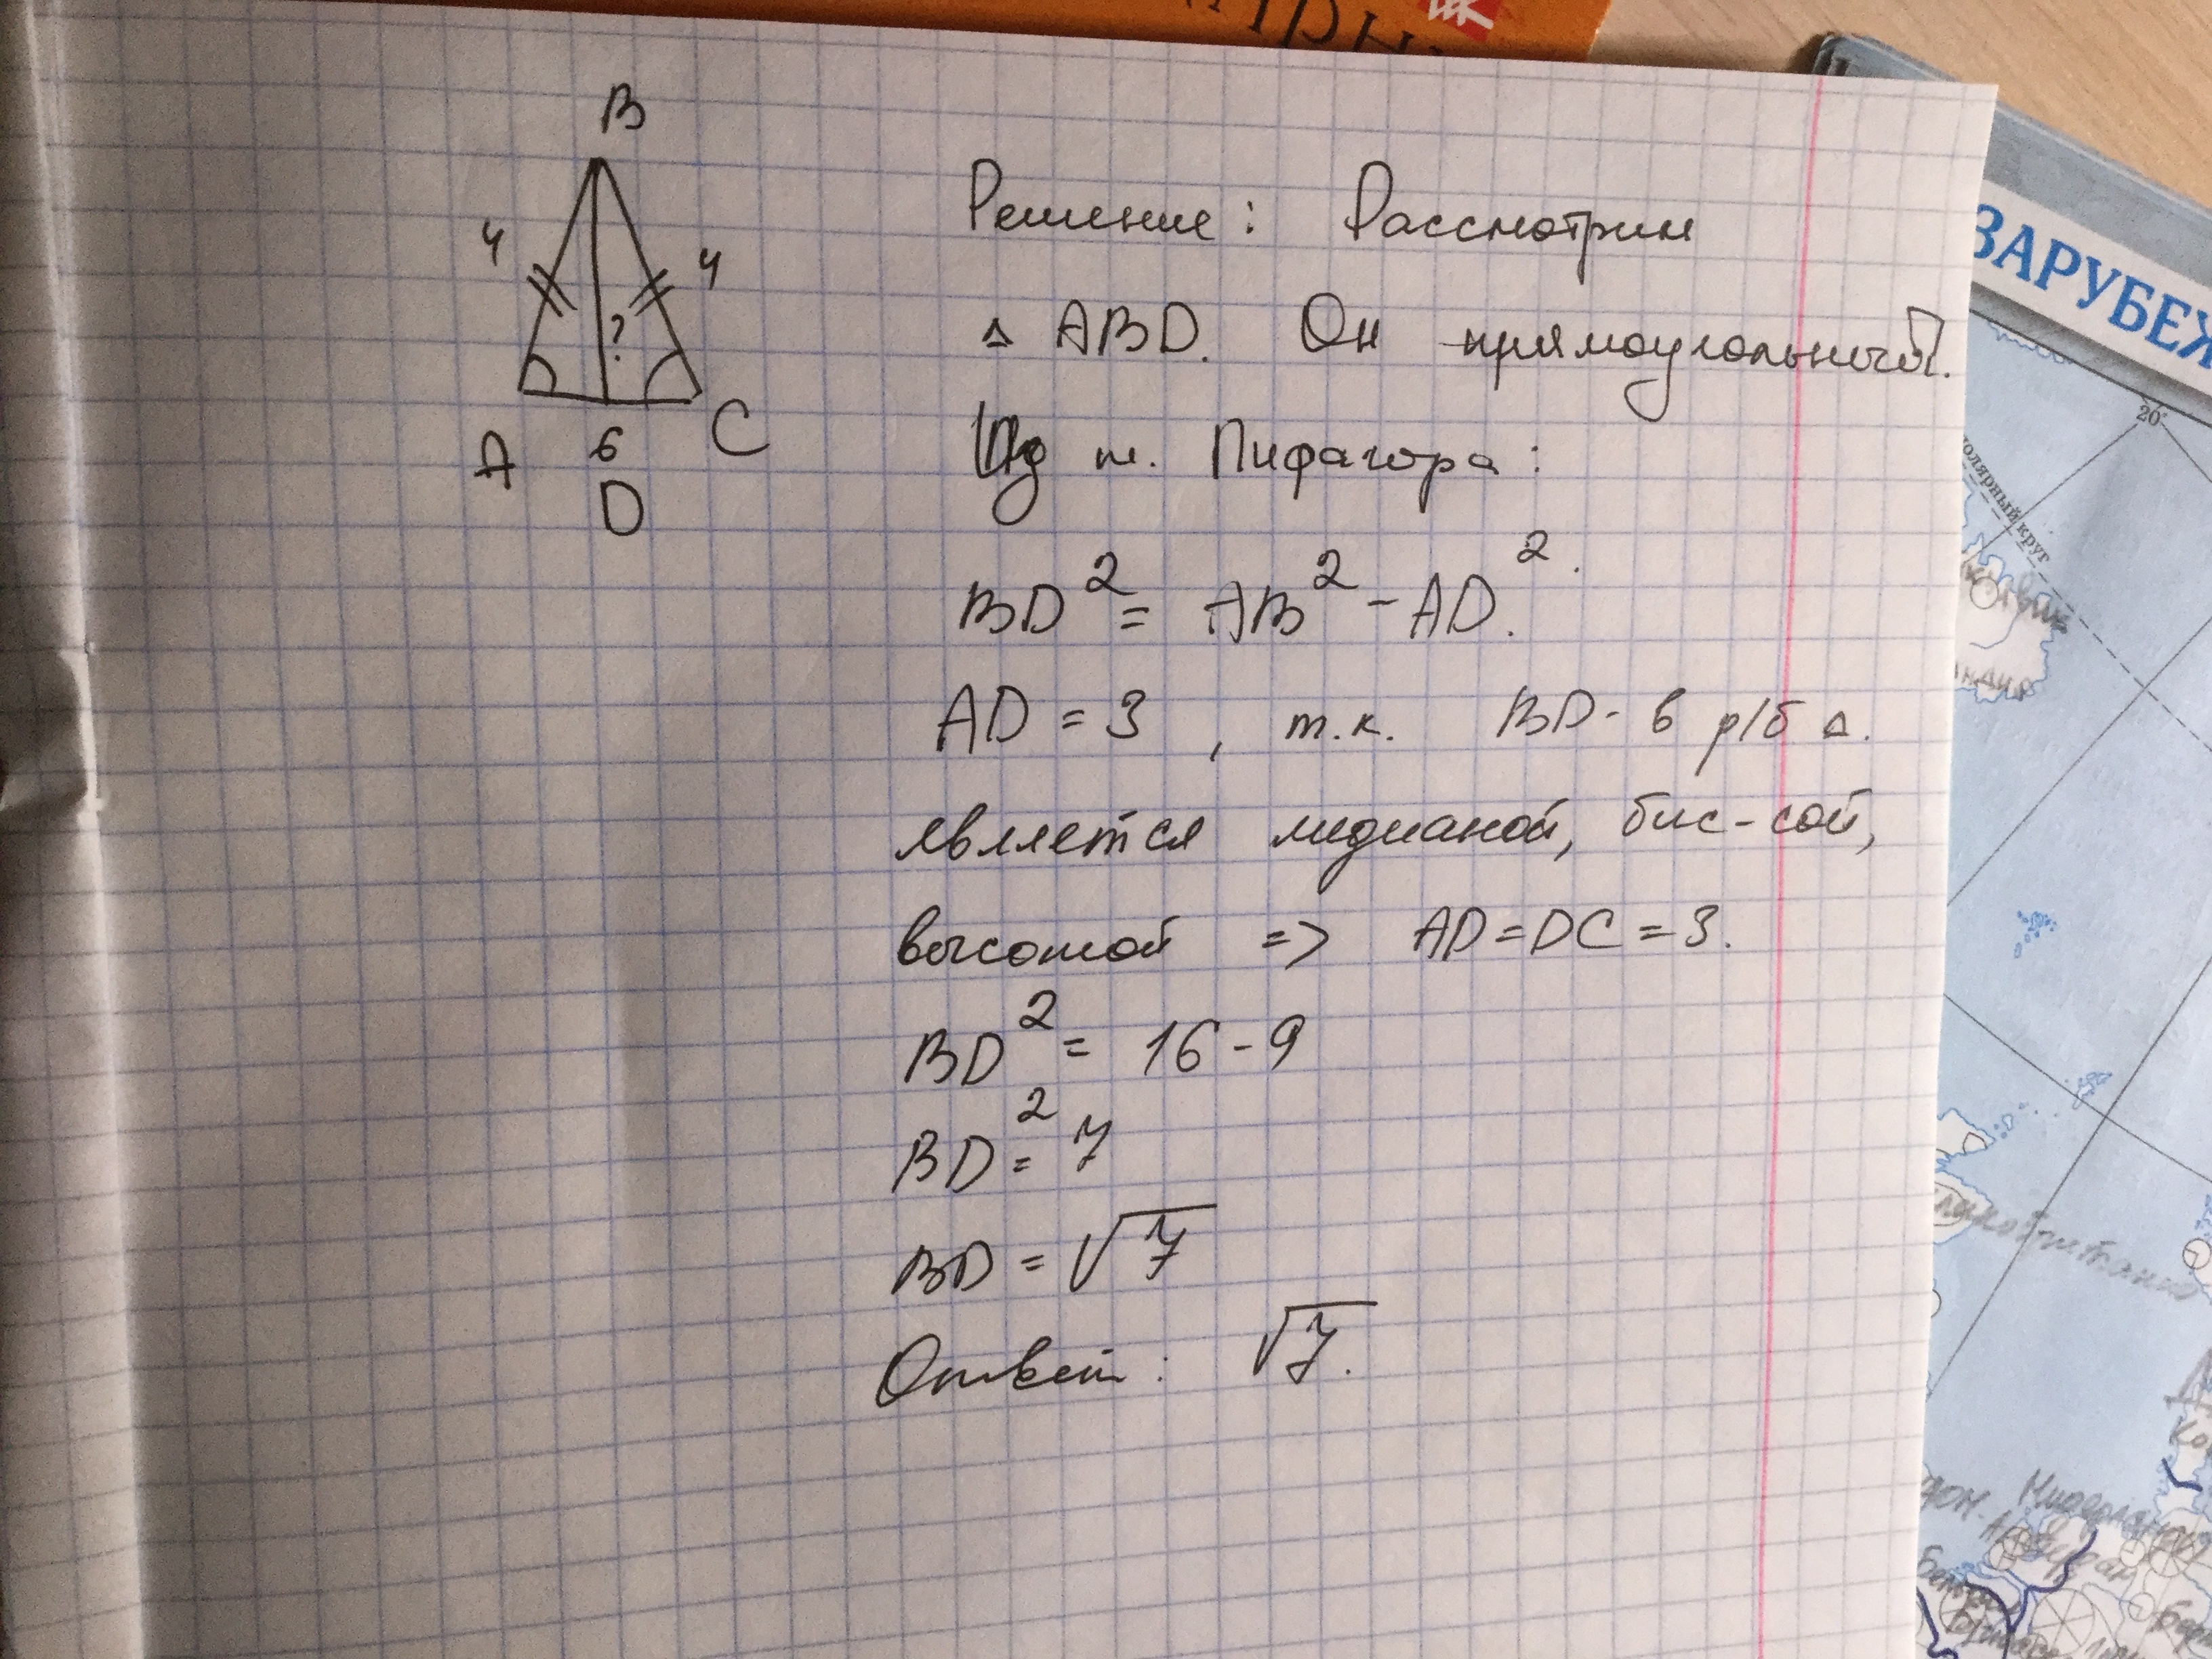 B
4
4
?
A
6
C
D
Решение: Рассмотрим
△ ABD. Он прямоугольный.
Из т. Пифагора:
BD² = AB² - AD².
AD = 3, т.к. BD - в р/б △.
является медианой, бис-сой,
высотой => AD = DC = 3.
BD² = 16 - 9
BD² = 7
BD = √7
Ответ: √7.
ЗАРУБЕЖ
20°
полярный круг